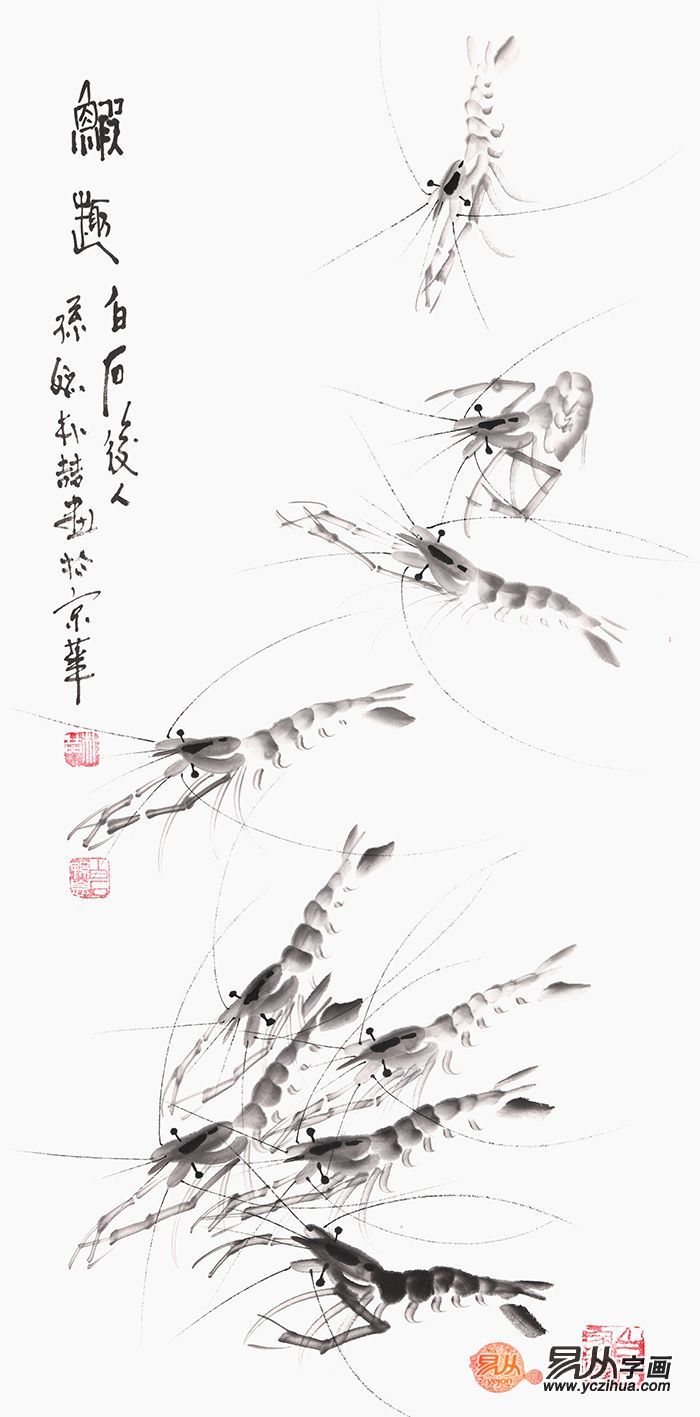 鰕趣
白石後人
孫媳朴喆畫於京華
易从
易从字画
www.yczihua.com